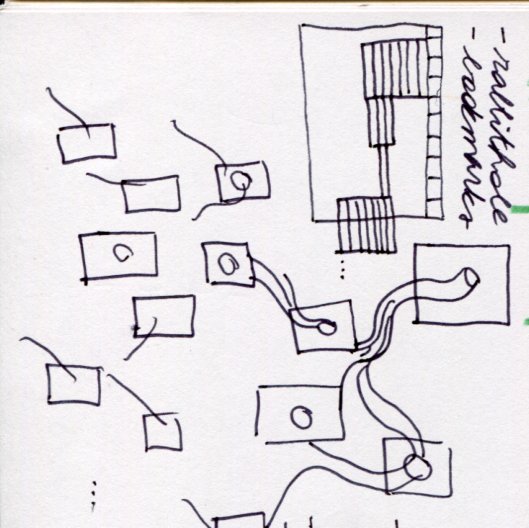 - rabbithole
- bookmarks